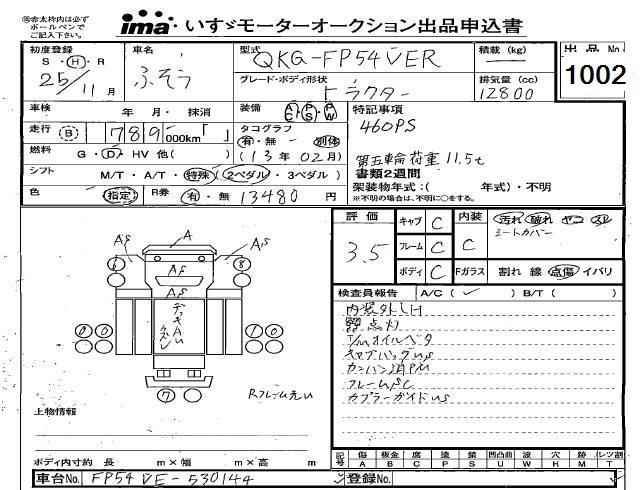 ㊟赤太枠内は必ず
ボールペンで
ご記入下さい。
ima いすゞモーターオークション出品申込書
初度登録 車名 型式 QKG-FP54VER 積載 (kg) 出品No
S・H・R 25/11月 ふそう
グレード・ボディ形状 トラクター 排気量(cc) 12800 1002
車検 年 月・ 抹消 装備 A/C P/S P/W 特記事項
走行 B 789,000km「 」 タコグラフ 有・無 別体 460PS
燃料 G・D・HV 他( ) (13年02月) 第五輪荷重11.5t
シフト M/T・A/T・特殊(2ペダル・3ペダル) 書類2週間
架装物年式:( 年式)・不明
※不明の場合は、不明に○をする。
色 指定 R券 有・無 13480 円
評価 3.5 キャブ C 内装 C 汚れ 破れ ヤコ スレ
シートカバー
フレーム C
ボディ C Fガラス 割れ 線 点傷 イバリ
検査員報告 A/C( ✓ ) B/T( )
内装外しH
点灯
T/Mオイルベタ
フレームSC
カプラーガイドUS
A
AS AS
6 AS 8
AS
0 0 1 0
0 0 0 0
7
Rフレーム
上物情報
ボディ内寸約 長 m×幅 m×高 m
記号 傷 板金 腐 塗 錆 凹凸曲 波 穴 跡 レンズ割
A B C P S U W H M T
車台No. FP54VE-530144 登録No.